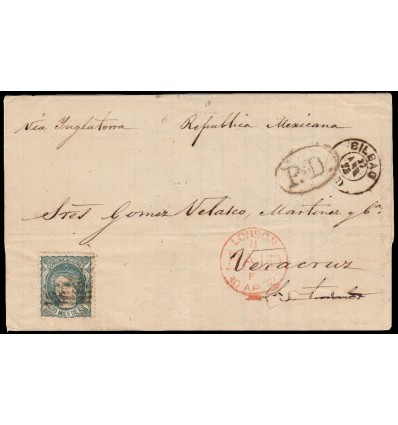 Via Inglaterra Republica Mexicana
P.D.
BILBAO
27
Sres Gomez Velasco, Martinez y Ca
LONDON
Veracruz
10 AP
MILS DE